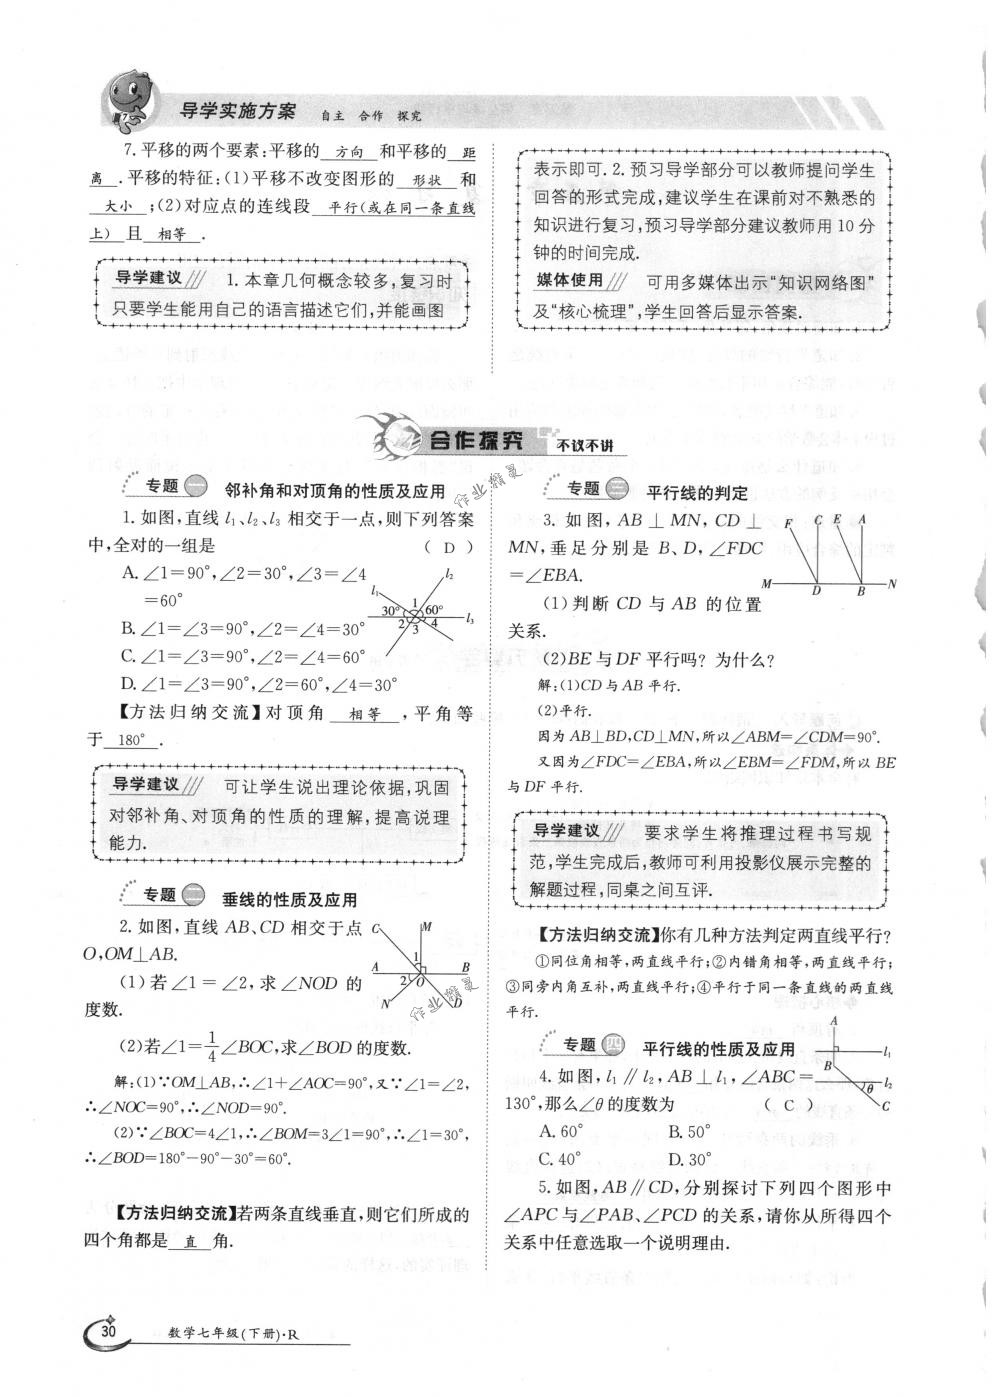 导学实施方案 自主 合作 探究
7.平移的两个要素:平移的 方向 和平移的 距
离 .平移的特征:(1)平移不改变图形的 形状 和
大小 ;(2)对应点的连线段 平行(或在同一条直线
上) 且 相等 .
导学建议/// 1.本章几何概念较多,复习时
只要学生能用自己的语言描述它们,并能画图
表示即可.2.预习导学部分可以教师提问学生
回答的形式完成,建议学生在课前对不熟悉的
知识进行复习,预习导学部分建议教师用10分
钟的时间完成.
媒体使用/// 可用多媒体出示“知识网络图”
及“核心梳理”,学生回答后显示答案.
合作探究 不议不讲
专题一 邻补角和对顶角的性质及应用
1.如图,直线 l₁、l₂、l₃ 相交于一点,则下列答案
中,全对的一组是 ( D )
A.∠1=90°,∠2=30°,∠3=∠4
=60°
B.∠1=∠3=90°,∠2=∠4=30°
C.∠1=∠3=90°,∠2=∠4=60°
D.∠1=∠3=90°,∠2=60°,∠4=30°
l₁ l₂ l₃ 30° 1 60° 2 3 4
【方法归纳交流】对顶角 相等 ,平角等
于 180° .
导学建议/// 可让学生说出理论依据,巩固
对邻补角、对顶角的性质的理解,提高说理
能力.
专题二 垂线的性质及应用
2.如图,直线 AB、CD 相交于点
O,OM⊥AB.
(1)若∠1=∠2,求∠NOD 的
度数.
C M A 1 B 2 O N D
(2)若∠1=1/4∠BOC,求∠BOD的度数.
解:(1)∵OM⊥AB,∴∠1+∠AOC=90°,又∵∠1=∠2,
∴∠NOC=90°,∴∠NOD=90°.
(2)∵∠BOC=4∠1,∴∠BOM=3∠1=90°,∴∠1=30°,
∴∠BOD=180°-90°-30°=60°.
【方法归纳交流】若两条直线垂直,则它们所成的
四个角都是 直 角.
专题三 平行线的判定
3.如图,AB⊥MN,CD⊥
MN,垂足分别是 B、D,∠FDC
=∠EBA.
(1)判断 CD 与 AB 的位置
关系.
F C E A M D B N
(2)BE与DF平行吗?为什么?
解:(1)CD与AB平行.
(2)平行.
因为AB⊥BD,CD⊥MN,所以∠ABM=∠CDM=90°.
又因为∠FDC=∠EBA,所以∠EBM=∠FDM,所以BE
与DF平行.
导学建议/// 要求学生将推理过程书写规
范,学生完成后,教师可利用投影仪展示完整的
解题过程,同桌之间互评.
【方法归纳交流】你有几种方法判定两直线平行?
①同位角相等,两直线平行;②内错角相等,两直线平行;
③同旁内角互补,两直线平行;④平行于同一条直线的两直线
平行.
专题四 平行线的性质及应用
4.如图,l₁∥l₂,AB⊥l₁,∠ABC=
130°,那么∠θ的度数为 ( C )
A l₁ B l₂ θ C
A.60° B.50°
C.40° D.30°
5.如图,AB∥CD,分别探讨下列四个图形中
∠APC与∠PAB、∠PCD的关系,请你从所得四个
关系中任意选取一个说明理由.
作业精灵
作业精灵
30 数学七年级(下册)·R